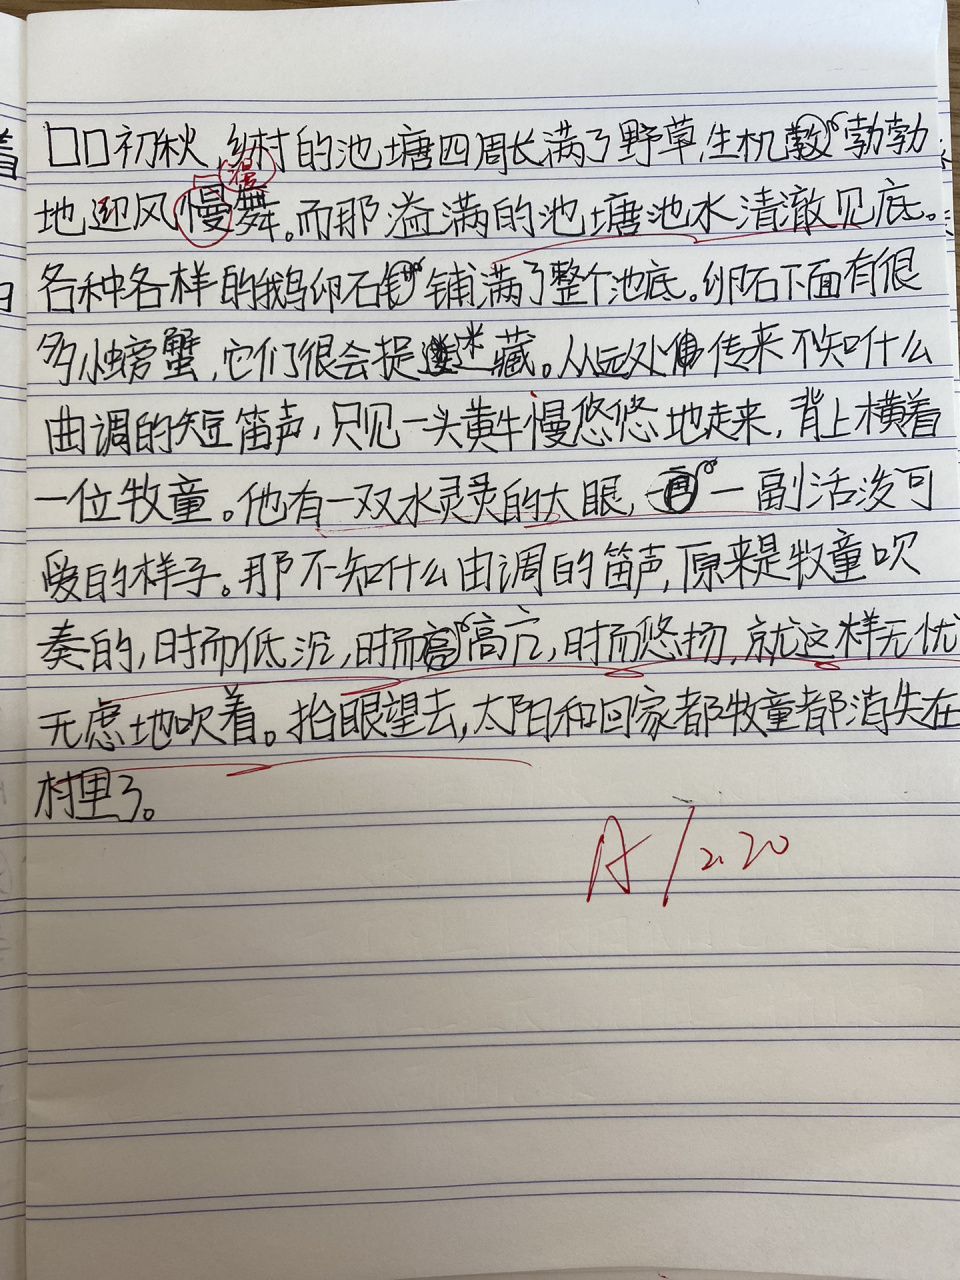 口口初秋,乡村的池塘四周长满了野草,生机勃勃
漫
地迎风慢舞。而那溢满的池塘池水清澈见底。
各种各样的鹅卵石铺满了整个池底。卵石下面有很
多小螃蟹,它们很会捉迷藏。从远处传来不知什么
曲调的短笛声,只见一头黄牛慢悠悠地走来,背上横着
一位牧童。他有一双水灵灵的大眼,一副活泼可
爱的样子。那不知什么曲调的笛声,原来是牧童吹
奏的,时而低沉,时而高亢,时而悠扬,就这样无忧
无虑地吹着。抬眼望去,太阳和回家都牧童都消失在
村里了。
A / 2.20
着
日